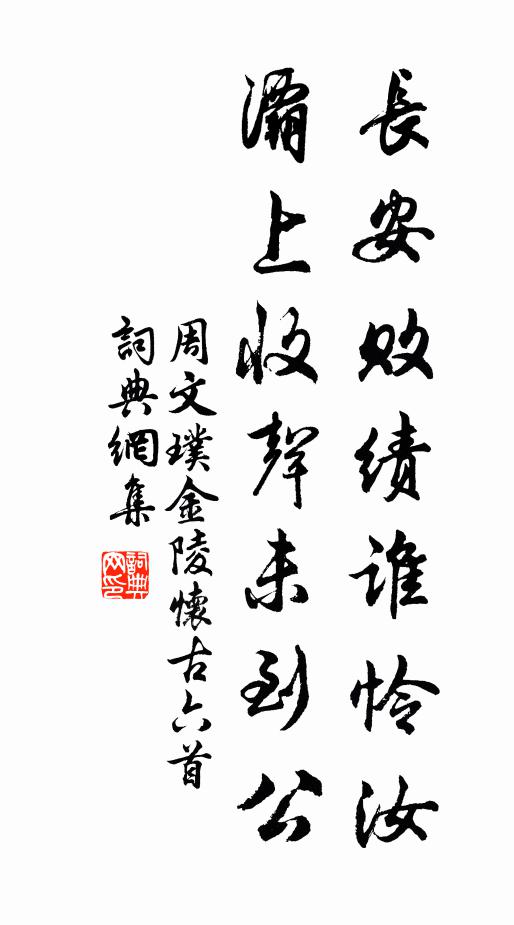 長安敗績誰怜汝
灞上收聲未到公
周文璞金陵懷古六首
詞典網集
詞典网印